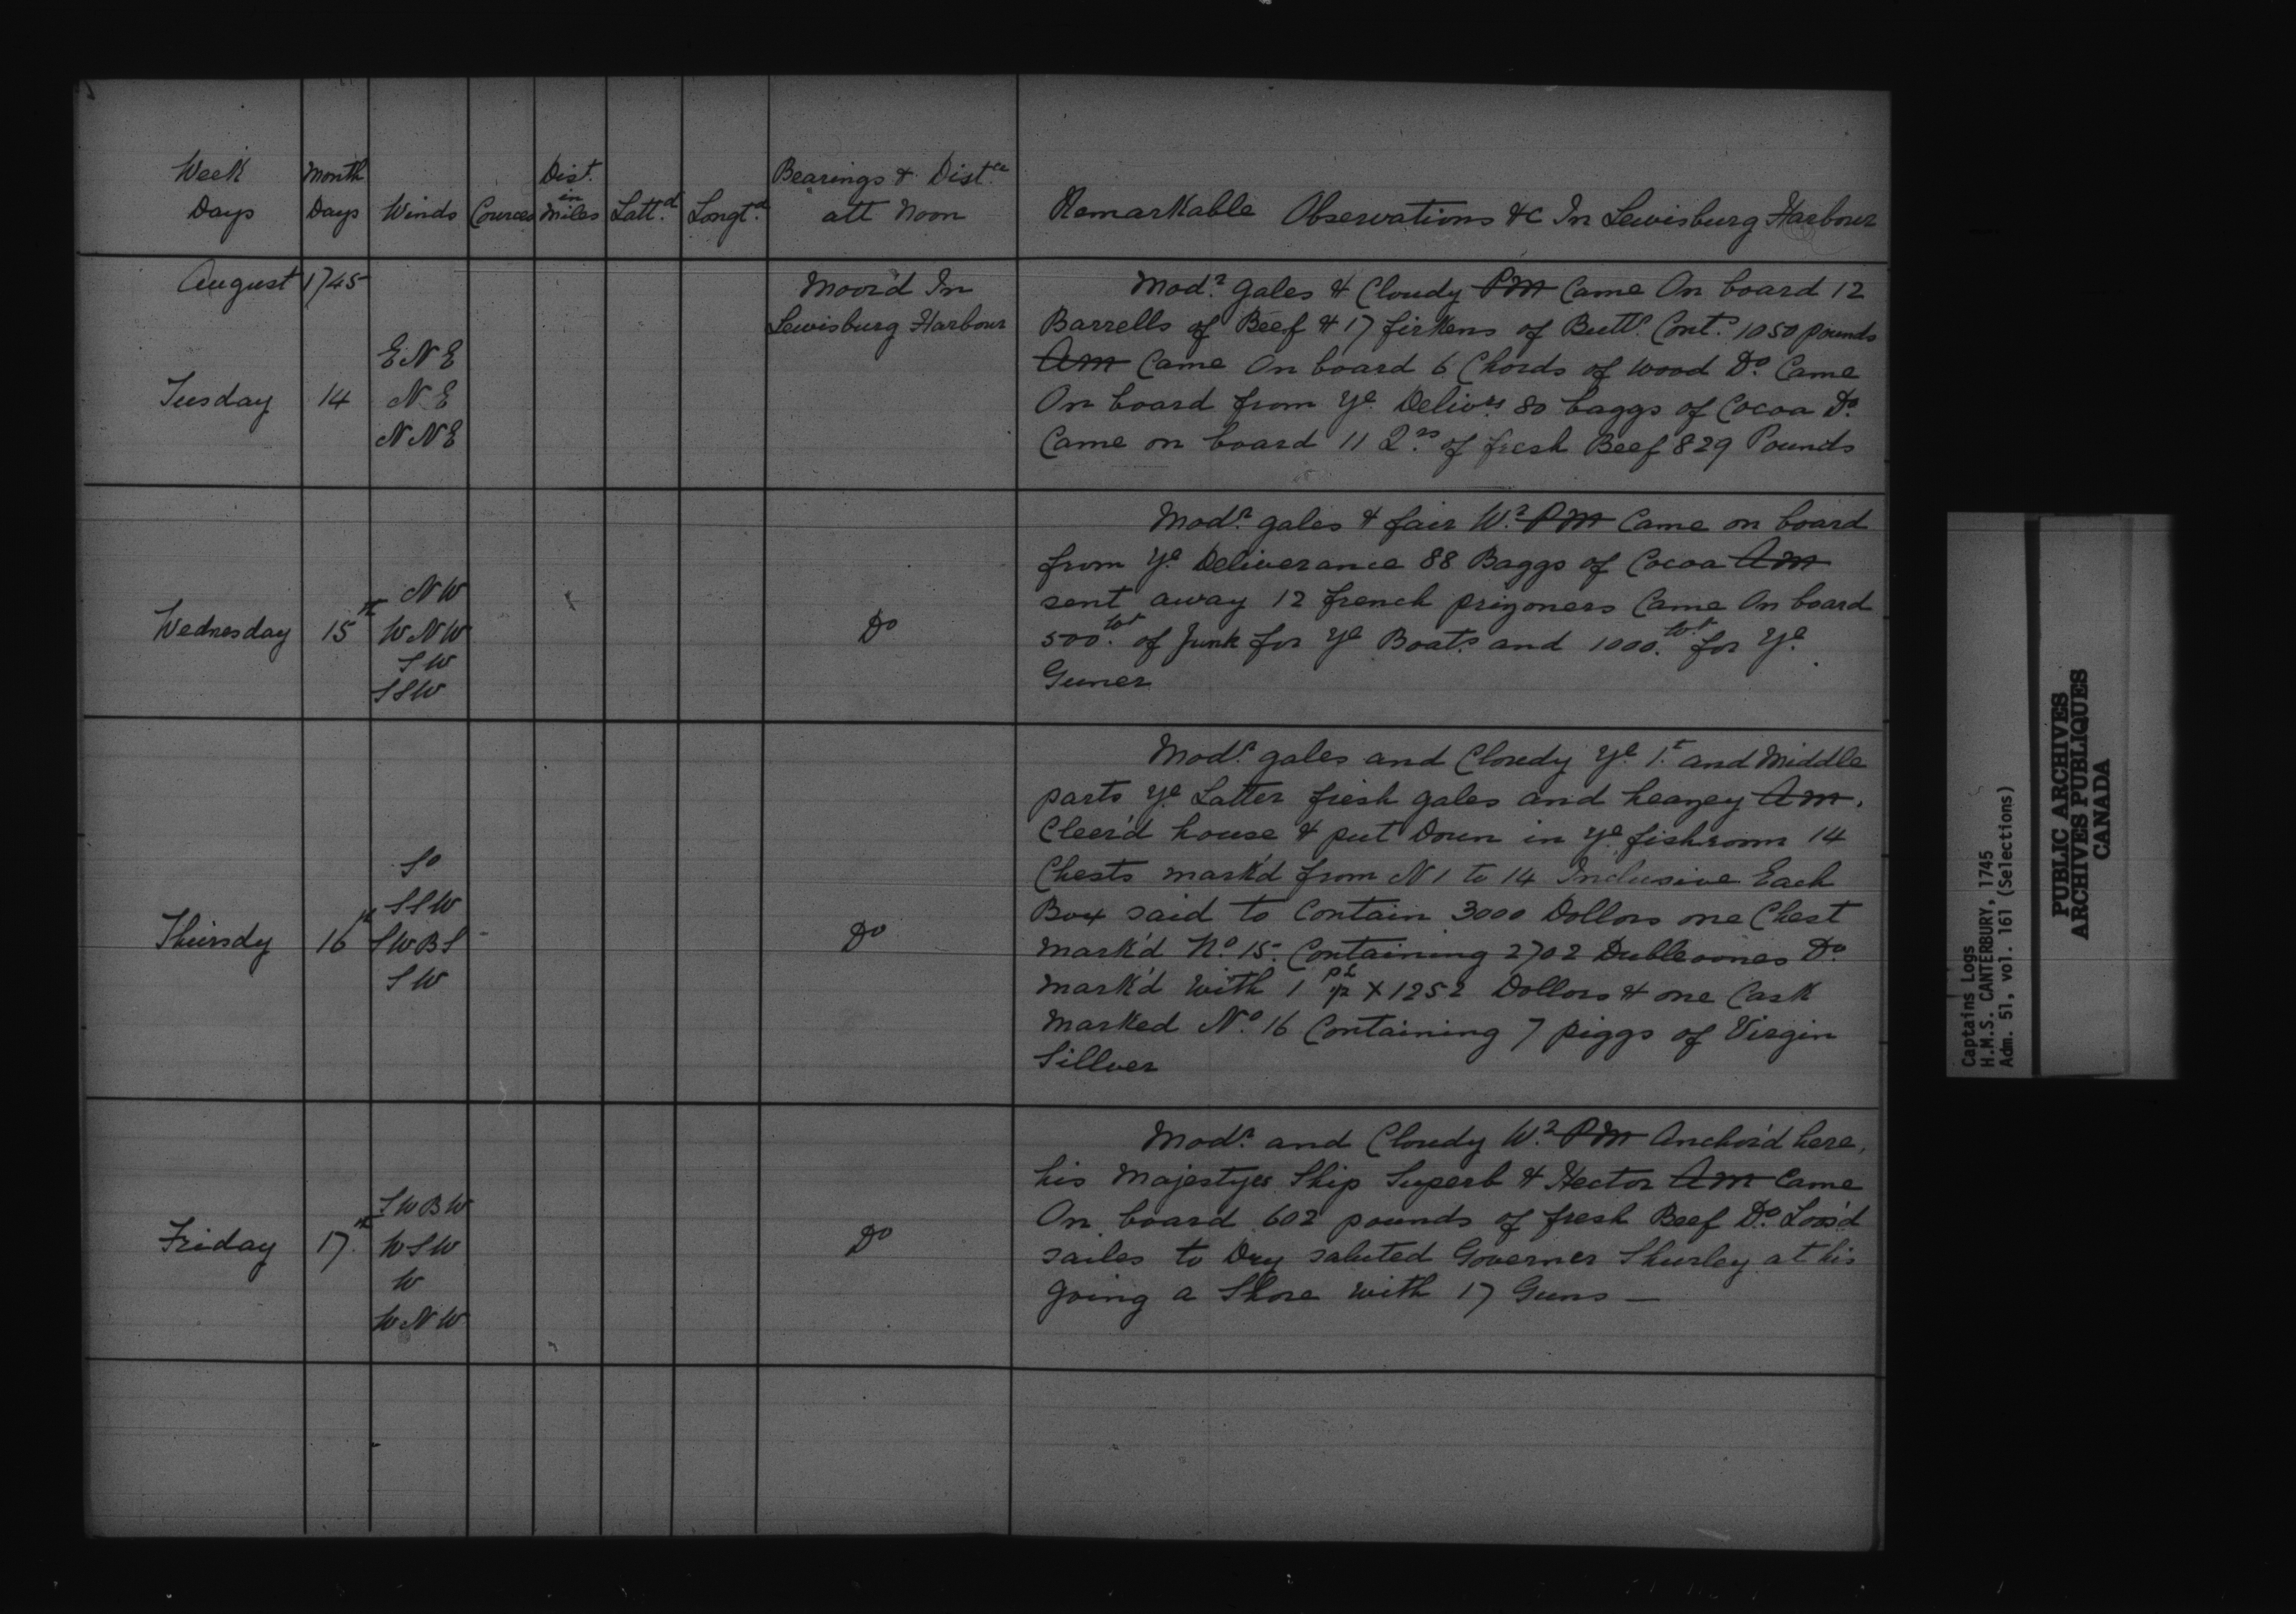 Week Days
Month Days
Winds
Cources
Dist. in Miles
Latt.d
Longt.d
Bearings & Dist.ce att Noon
Remarkable Observations &c In Lewisburg Harbour
August 1745
Tusday
14
E N E
N E
N N E
Moor'd In
Lewisburg Harbour
Mod.r gales & Cloudy PM Came On board 12
Barrells of Beef & 17 firkens of Butt.r Cont.g 1050 pounds
AM Came On board 6 Chords of wood Do. Came
On board from ye Deliv.rs 80 baggs of Cocoa Do.
Came on board 11 Q.rs of fresh Beef 829 Pounds
Wednesday
15th
N W
W N W
S W
S S W
Do
Mod.r gales & fair W.r PM Came on board
from ye Deliverance 88 Baggs of Cocoa AM
sent away 12 french prizoners Came On board
500.wt of Junk for ye Boat.s and 1000.wt for ye
Guner
Thursdy
16th
So
S S W
S W B S
S W
Do
Mod.r gales and Cloudy ye 1.t and Middle
parts ye Latter fresh gales and heazey AM.
Cleer'd house & put Down in ye fishroom 14
Chests mark'd from N 1 to 14 Inclusive Each
Box said to Contain 3000 Dollors one Chest
Mark'd No. 15. Containing 2702 Dubleoones Do.
Mark'd with 1 X 1252 Dollors & one Cask
Marked No. 16 Containing 7 piggs of Virgin
Sillver
Friday
17.th
S W B W
W S W
W
W N W
Do
Mod.r and Cloudy W.r PM Anchor'd here,
his Majestyes Ship Superb & Hector AM Came
On board 602 pounds of fresh Beef Do. Loos'd
sailes to Dry saluted Governer Shurley at his
going a Shore with 17 Guns —
Captains Logs
H.M.S. CANTERBURY, 1745
Adm. 51, vol. 161 (Selections)
PUBLIC ARCHIVES
ARCHIVES PUBLIQUES
CANADA